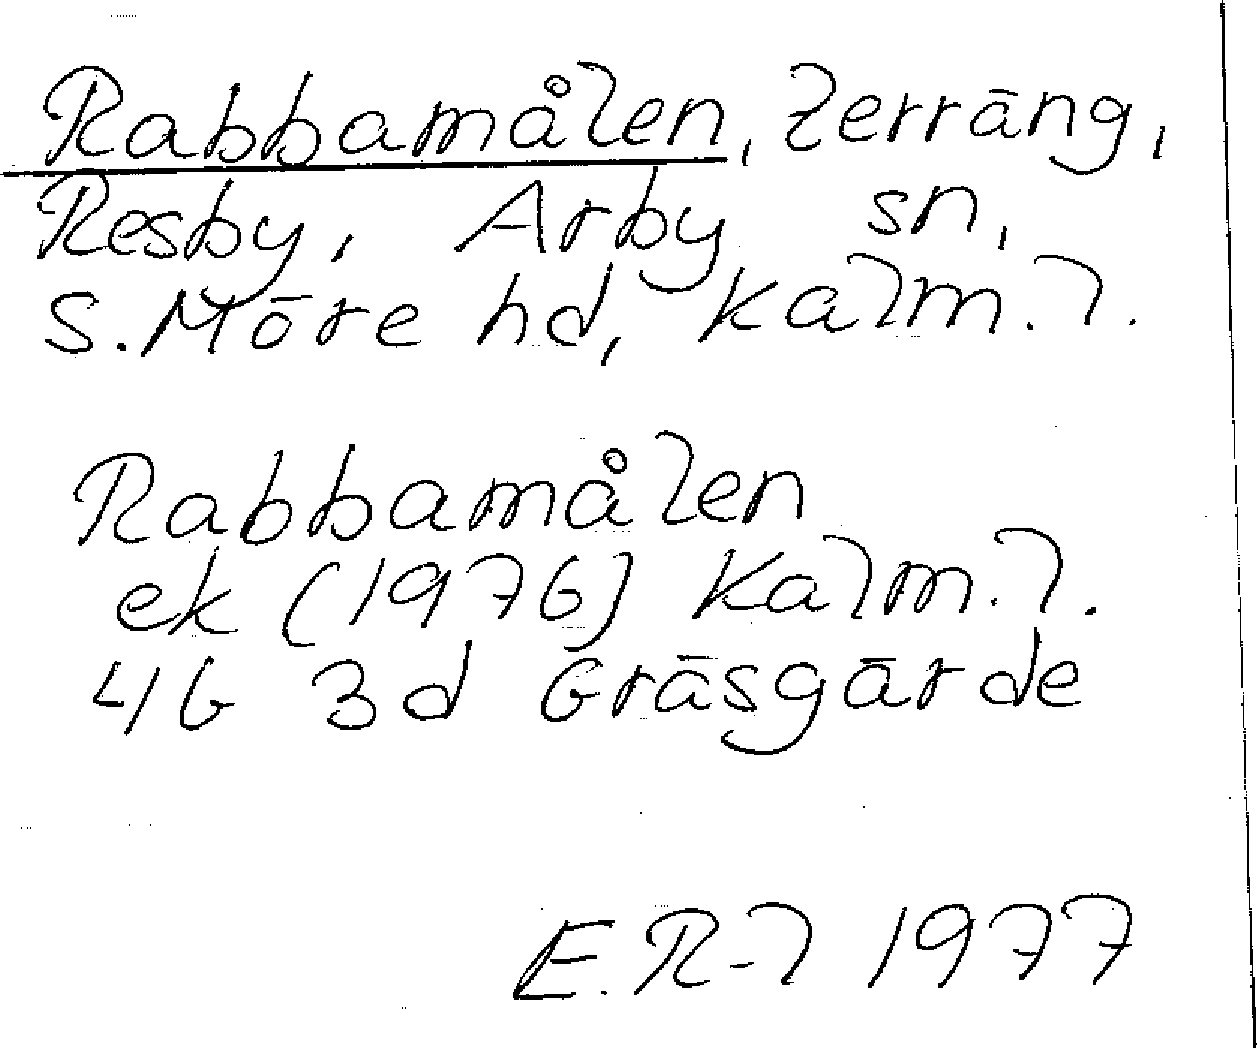 Rabbamålen, terräng,
Resby, Arby sn,
S. Möre hd, Kalm. l.
Rabbamålen
ek (1976) Kalm. l.
4G 3d Gräsgärde
E. R-l 1977